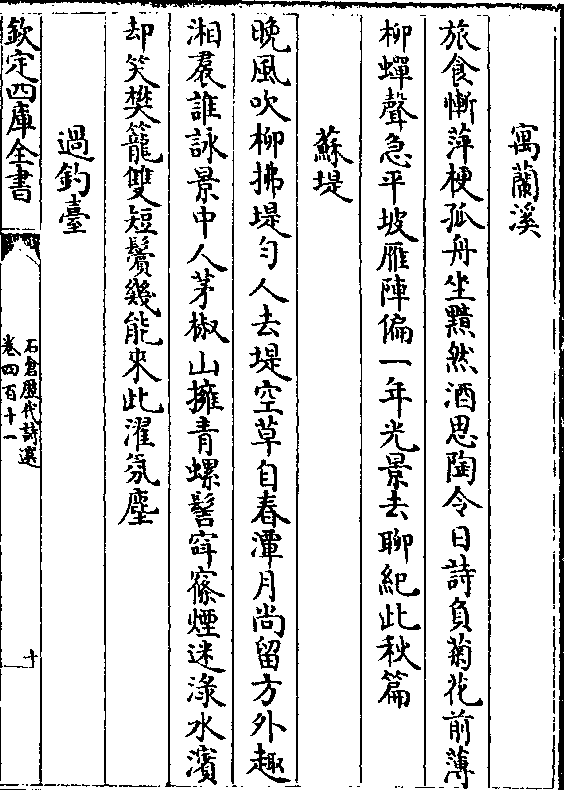 寓蘭溪
旅食慚萍梗孤舟坐黯然酒思陶令日詩負菊花前薄
柳蟬聲急平坡雁陣偏一年光景去聊紀此秋篇
蘇堤
晚風吹柳拂堤勻人去堤空草自春潭月尚留方外趣
湘裙誰詠景中人茅椒山擁青螺髻窣窱煙迷淥水濱
却笑樊籠雙短鬢幾能來此濯氛塵
過釣臺
欽定四庫全書
石倉歷代詩選
卷四百十一
十